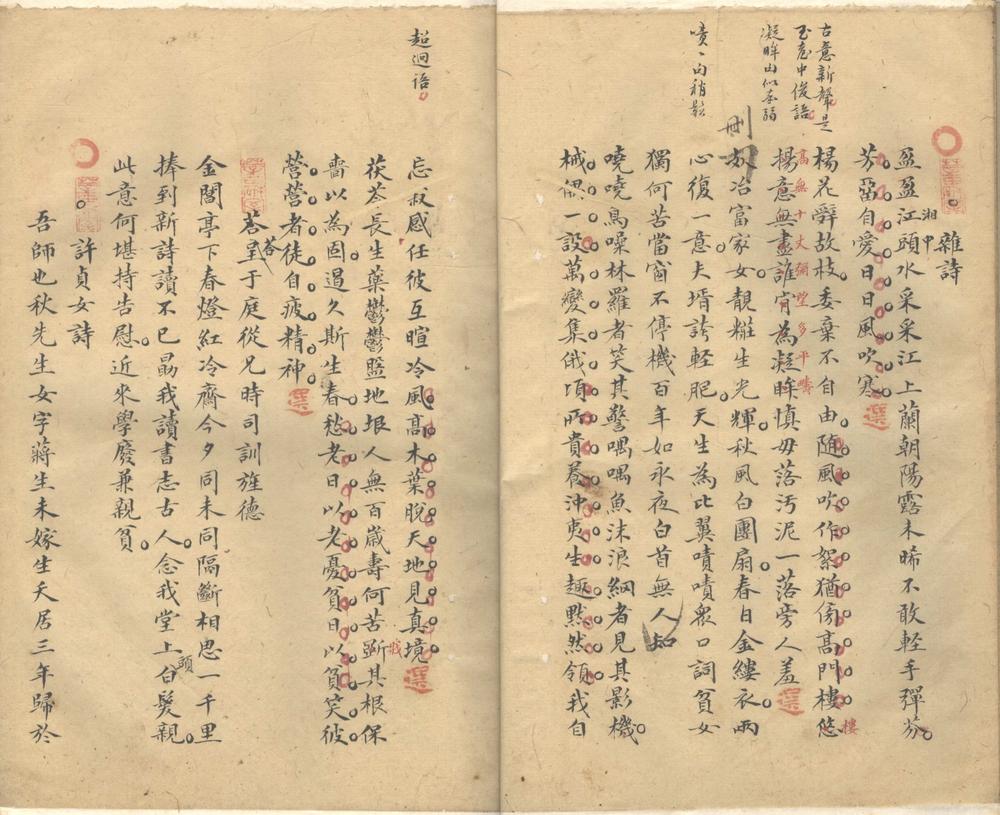 古意新聲是
玉臺中俊語
凝眸句似太弱
嘖嘖句稍鬆
刪
雜詩
盈盈江頭水采采江上蘭朝陽露未晞不敢輕手彈芬
湘中
芬留自愛日日風吹寒
選
楊花辭故枝委棄不自由随風吹作絮猶傍高門樓悠
樓
高無十丈彌望多平疇
楊意無盡誰肯為凝眸慎毋落污泥一落旁人羞
選
妖冶富家女靚粧生光輝秋風白團扇春日金縷衣兩
心復一意夫壻誇輕肥天生為比翼嘖嘖眾口詞貧女
獨何苦當窗不停機百年如永夜白首無人知
嘵嘵鳥噪林羅者笑其警喁喁魚沫浪網者見其影機
械偶一設萬變集俄頃所貴養沖夷生趣默然領我自
超迥語
忘叔感任彼互暄冷風高木葉脫天地見真境
選
茯苓長生藥鬱鬱盤地垠人無百歲壽何苦斲其根保
戕
嗇以為固過久斯生春愁老日以老憂貧日以貧笑彼
營營者徒自疲精神
選
荅呈于庭從兄時司訓旌德
答
金閶亭下春燈紅冷齋今夕同未同隔斷相思一千里
捧到新詩讀不已勗我讀書志古人念我堂上白髮親
頭
此意何堪持告慰近來學廢兼親貧
許貞女詩
吾師也秋先生女字蔣生未嫁生夭居三年歸於